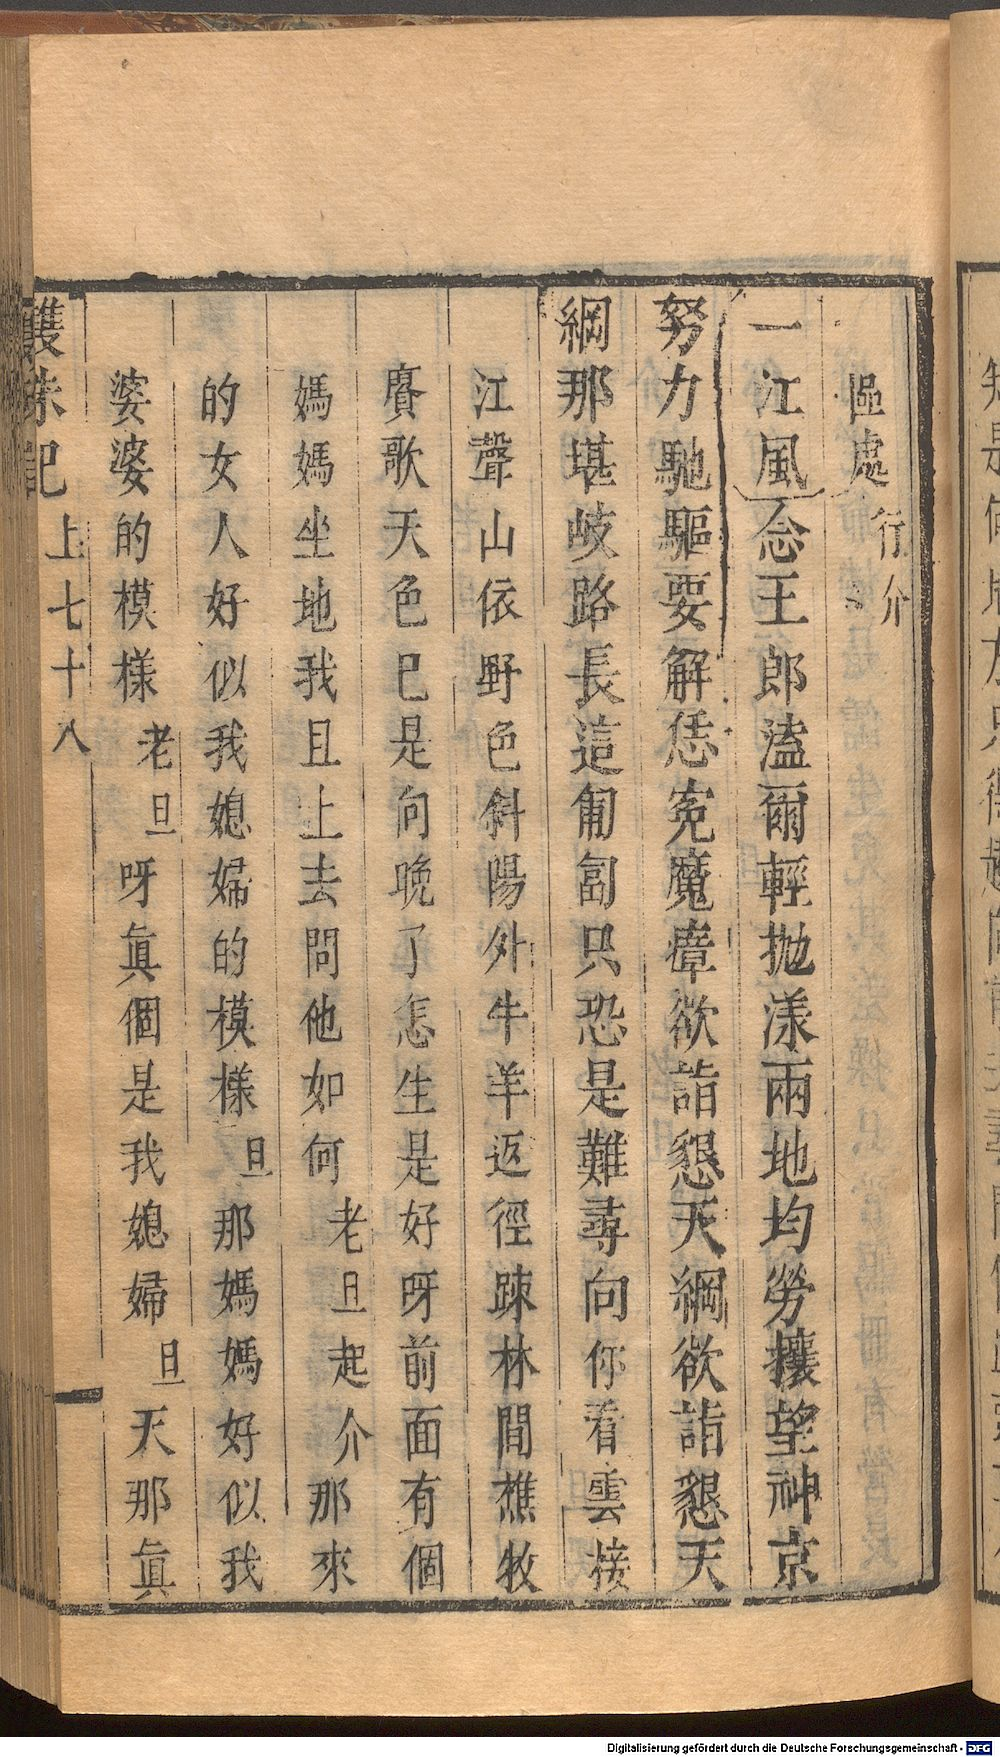 區處行介
一江風念王郎溘爾輕拋漾兩地均勞攘望神京
努力馳驅要解恁寃魔瘴欲詣懇天綱欲詣懇天
綱那堪歧路長這匍匐只恐是難尋向你看雲接
江聲山依野色斜陽外牛羊返徑踈林間樵牧
賡歌天色巳是向晚了怎生是好呀前面有個
媽媽坐地我且上去問他如何老旦起介那來
的女人好似我媳婦的模樣旦那媽媽好似我
婆婆的模樣老旦呀眞個是我媳婦旦天那眞
雙珠記 上七十八
Digitalisierung gefördert durch die Deutsche Forschungsgemeinschaft - DFG